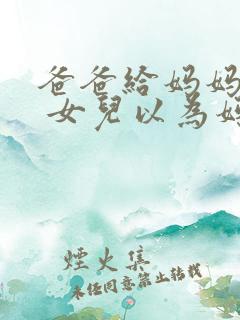 爸爸給妈妈
女兒以為她
煙火集
未经同意禁止转载